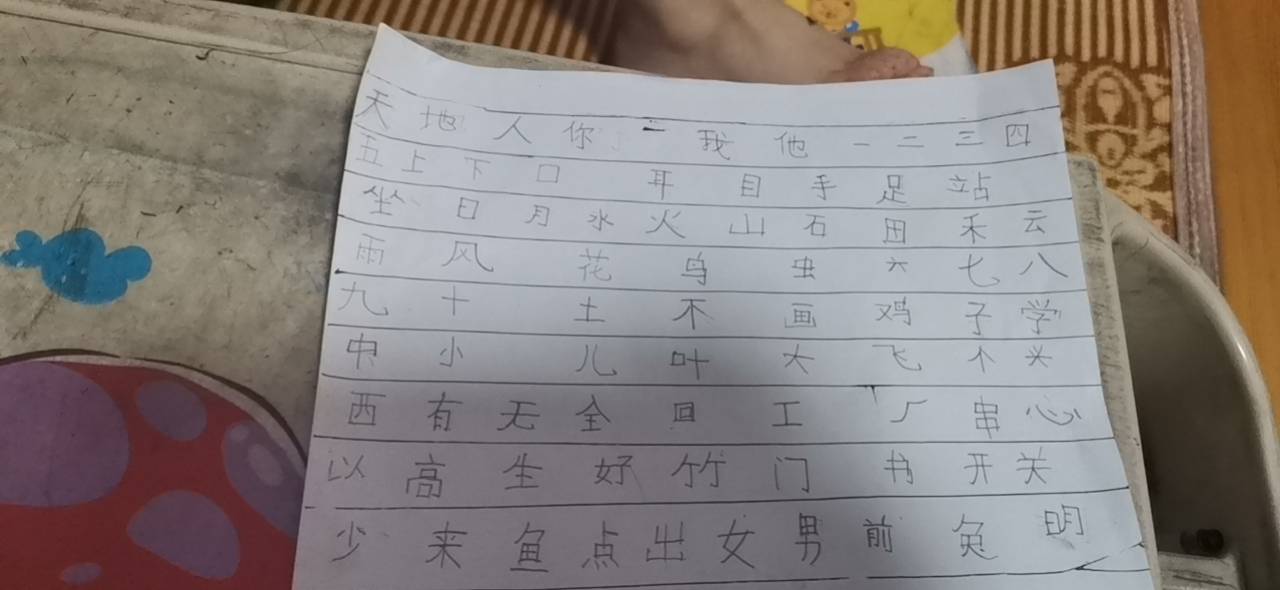 天 地 人 你 我 他 一 二 三 四
五 上 下 口 耳 目 手 足 站
坐 日 月 水 火 山 石 田 禾 云
雨 风 花 鸟 虫 六 七 八
九 十 土 不 画 鸡 子 学
中 小 儿 叶 大 飞 个 米
西 有 无 全 回 工 厂 串 心
以 高 生 好 竹 门 书 开 关
少 来 鱼 点 出 女 男 前 兔 明